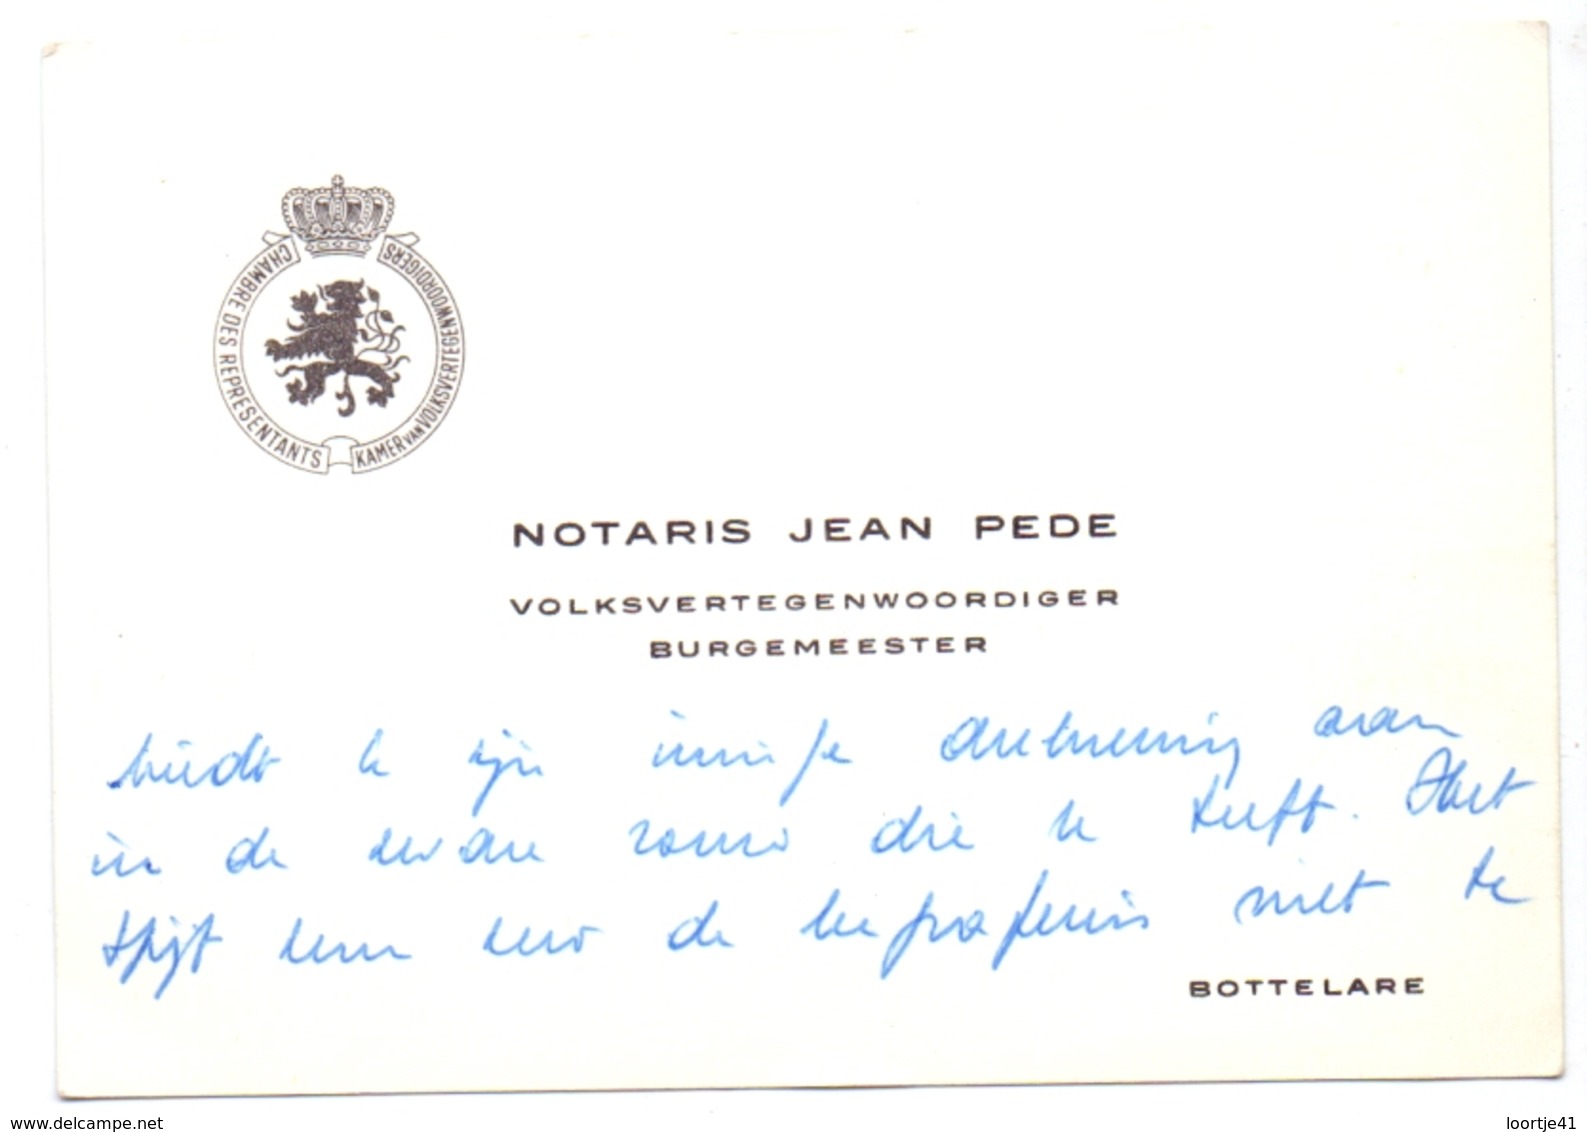 CHAMBRE DES REPRESENTANTS
KAMER VAN VOLKSVERTEGENWOORDIGERS
NOTARIS JEAN PEDE
VOLKSVERTEGENWOORDIGER
BURGEMEESTER
biedt U zijn innige deelneming aan
in de zware rouw die U treft. Het
spijt hem voor de begrafenis niet te
BOTTELARE
www.delcampe.net
loortje41